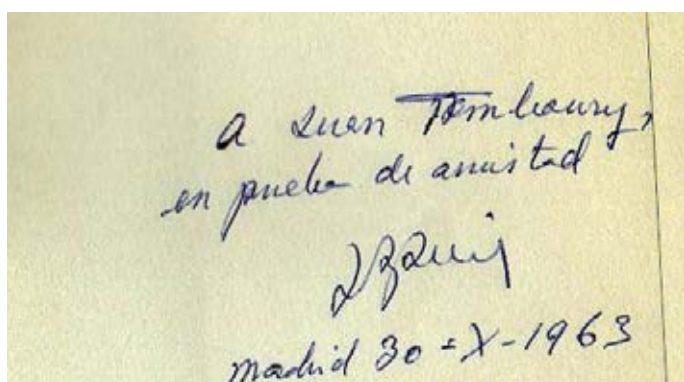 a Juan Temboury,
en prueba de amistad
Madrid 30=X-1963